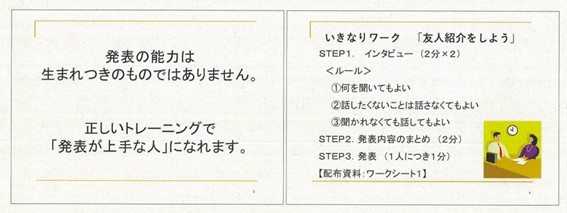 発表の能力は
生まれつきのものではありません。
正しいトレーニングで
「発表が上手な人」になれます。
いきなりワーク　「友人紹介をしよう」
STEP1.　インタビュー（2分×2）
＜ルール＞
①何を聞いてもよい
②話したくないことは話さなくてもよい
③聞かれなくても話してもよい
STEP2. 発表内容のまとめ（2分）
STEP3. 発表（1人につき1分）
【配布資料：ワークシート1】